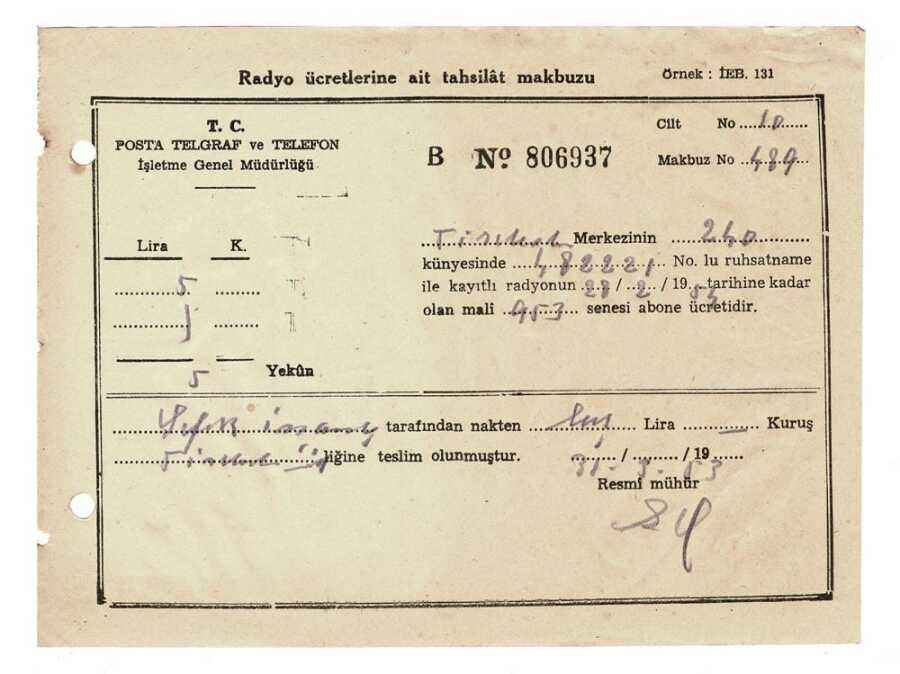 Radyo ücretlerine ait tahsilât makbuzu
Örnek : İEB. 131
T. C.
POSTA TELGRAF ve TELEFON
İşletme Genel Müdürlüğü
Cilt No 10
B Nº 806937
Makbuz No 489
Lira K.
5
5 Yekûn
Tirebolu Merkezinin 240
künyesinde 482221 No. lu ruhsatname
ile kayıtlı radyonun 28 / 2 / 1954 tarihine kadar
olan malî 953 senesi abone ücretidir.
tarafından nakten beş Lira — Kuruş
liğine teslim olunmuştur. 31 / 3 / 1953
Resmî mühür